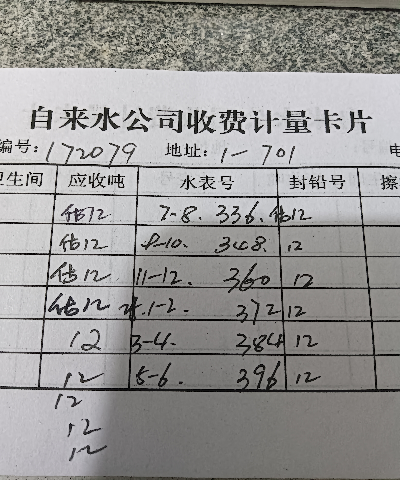 自来水公司收费计量卡片
编号:172079 地址:1-701
生间 应收吨 水表号 封铅号 擦
估12 7-8. 336. 估12
估12 9-10. 348. 12
估12 11-12. 360 12
估12 1-2. 372 12
12 3-4. 384 12
12 5-6. 396 12
12
12
12